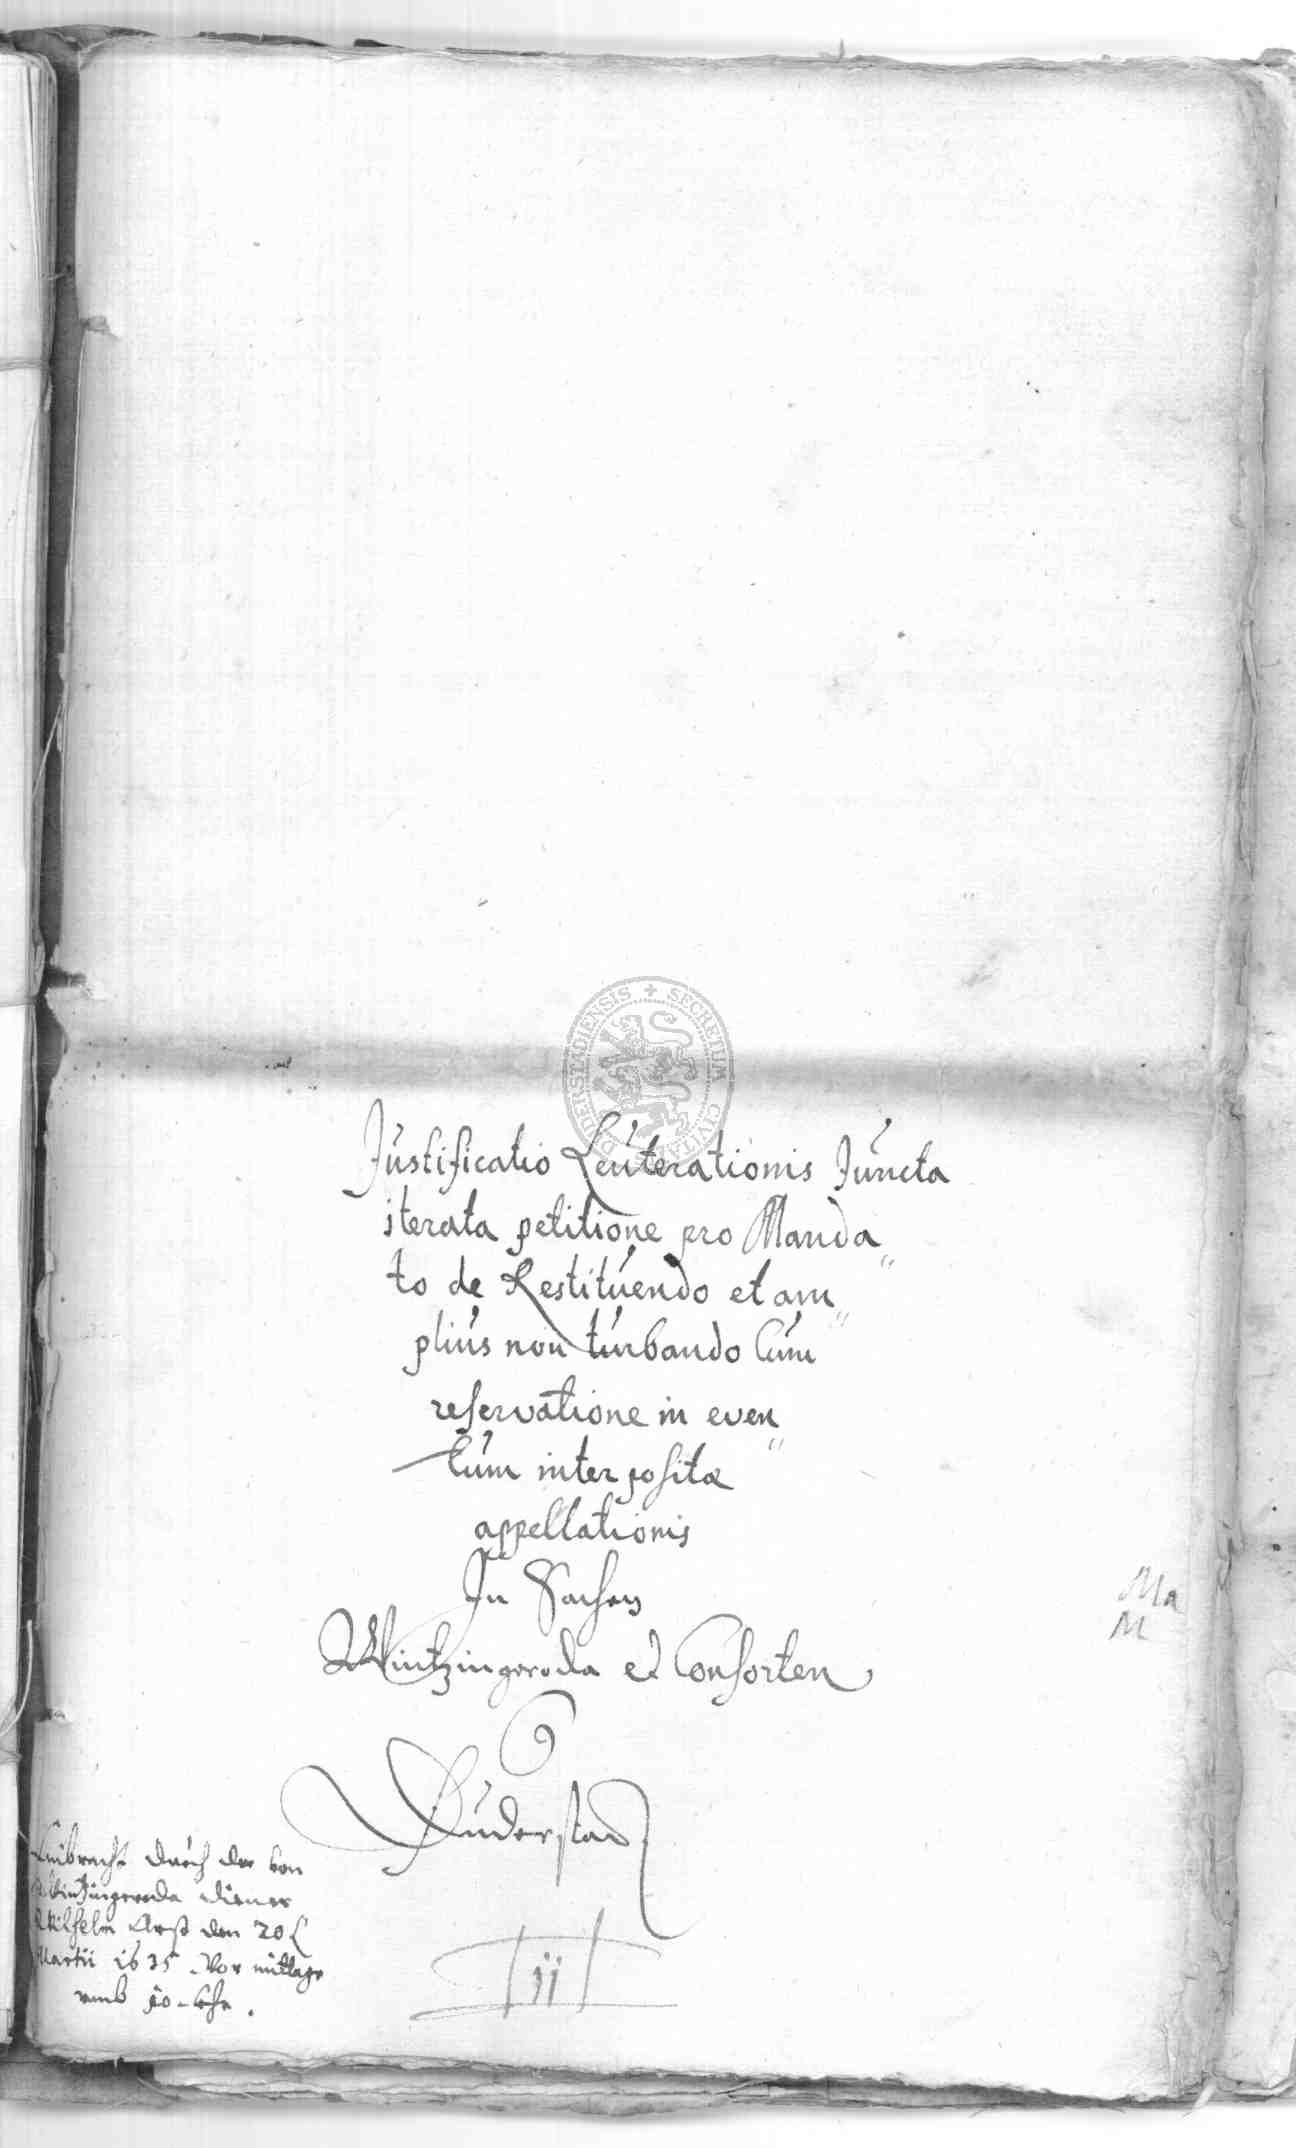 Justificatio Leuterationis Juncta
iterata petitione pro Manda"
to de Restituendo et am"
plius non turbando Cum
reservatione in even"
tum interpositæ
appellationis
In Sachen
Wintzingeroda et Consorten
Duderstad
Einbracht durch der von
Wintzingeroda diener
Wilhelm den 20
Martii 1635 Vor mittage
umb 10 Uhr.
Ma
M
DUDERSTADIENSIS + SECRETUM CIVITATIS